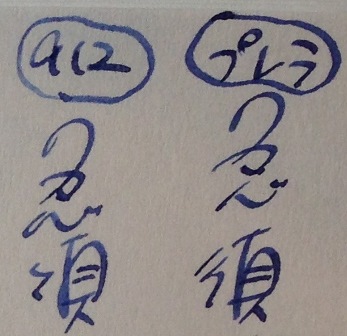 912
急須
プレラ
急須